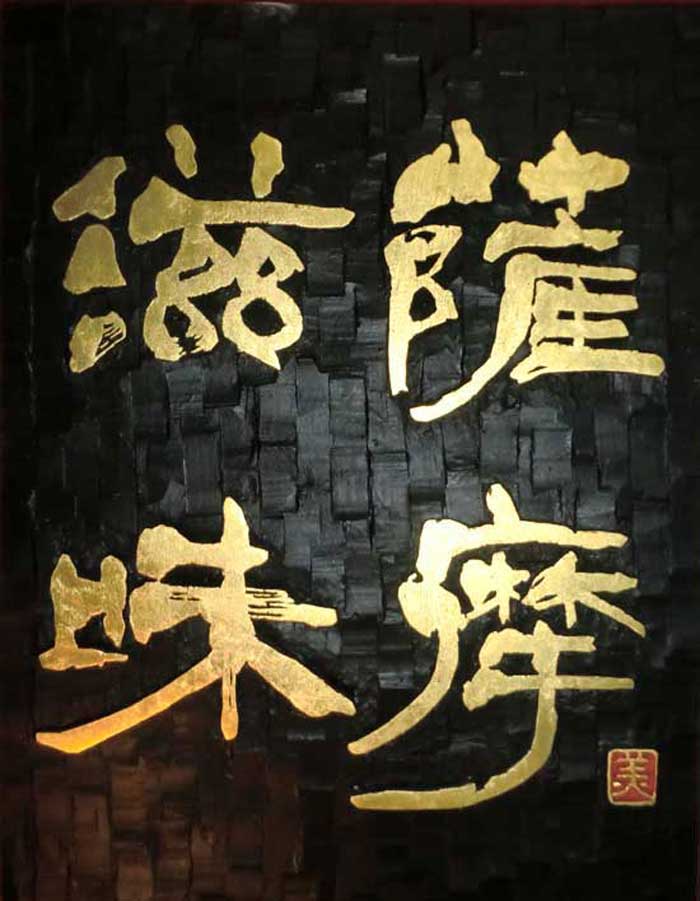 薩摩
滋味
美